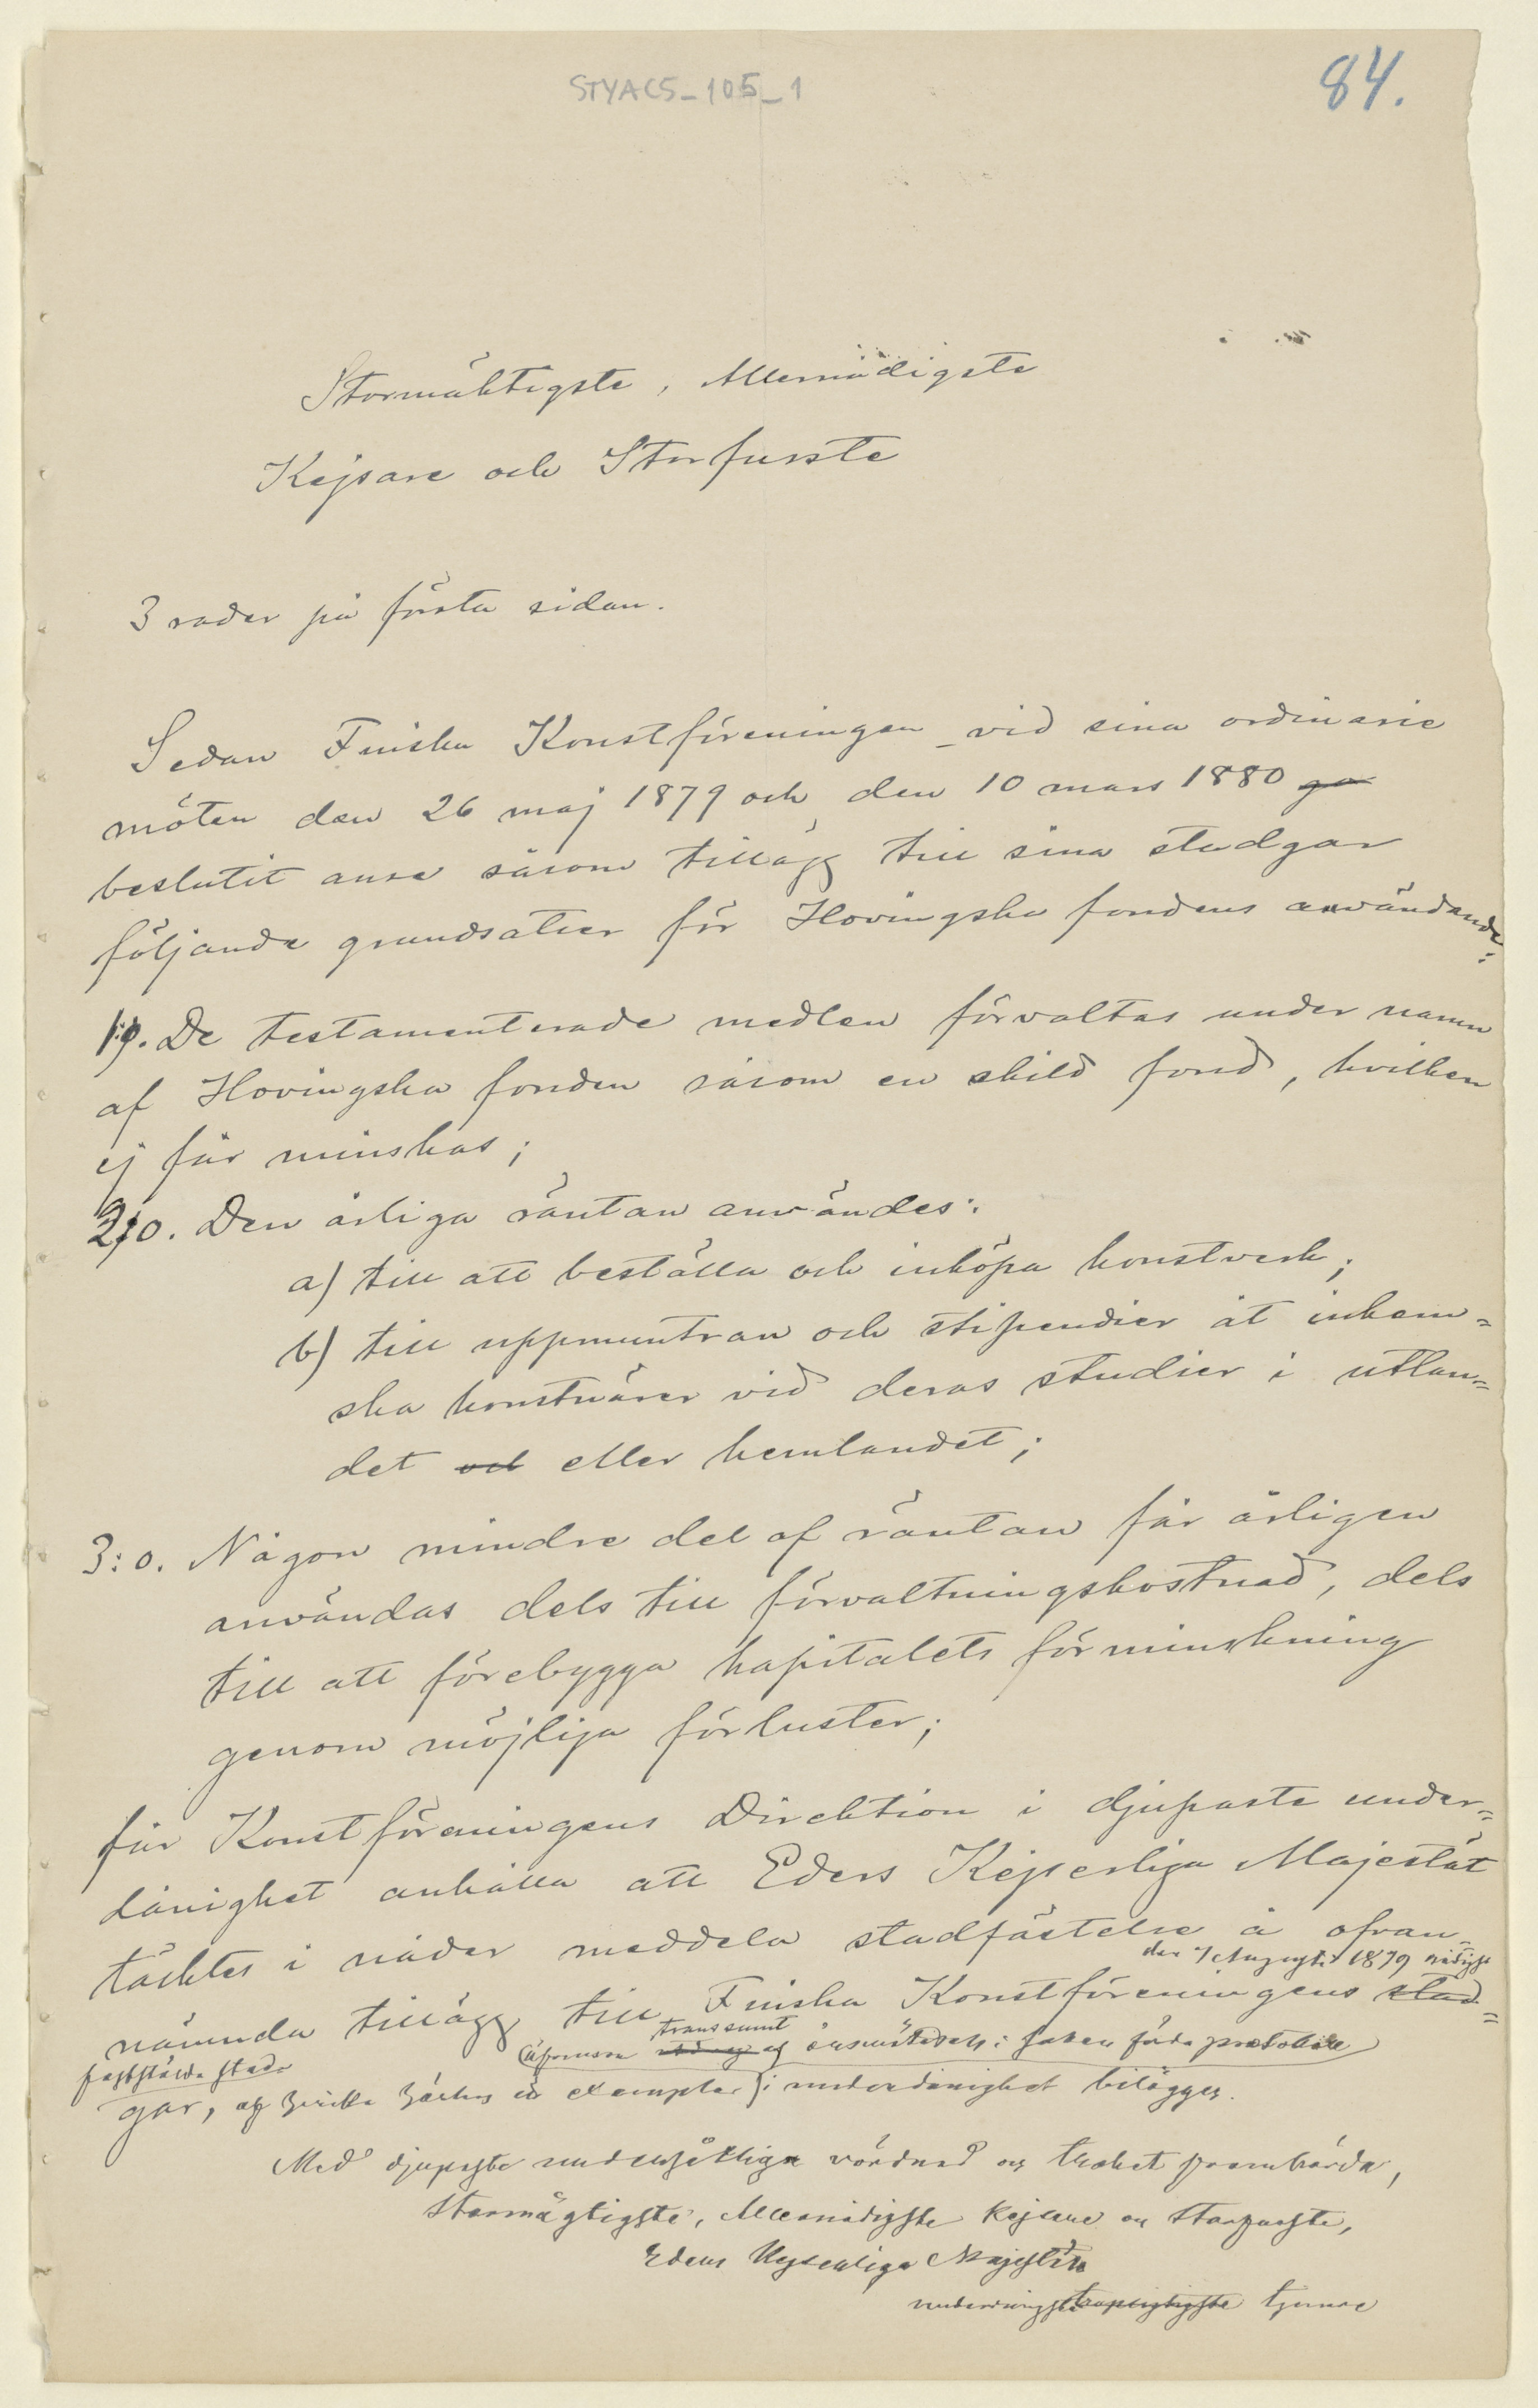 STYACS_105_1
84.
Stormäktigste, Allernådigste
Kejsare och Storfurste
3 rader på första sidan.
Sedan Finska Konstföreningen vid sina ordinarie
möten den 26 maj 1879 och den 10 mars 1880 ge
beslutit anse såsom tillägg till sina stadgar
följande grundsatser för Hovingska fondens användande:
1:o. De testamenterade medlen förvaltas under namn
af Hovingska fonden såsom en skild fond, hvilken
ej får minskas;
2:o. Den årliga räntan användes:
a) till att beställa och inköpa konstverk;
b) till uppmuntran och stipendier åt inhem=
ska konstnärer vid deras studier i utlan=
det och eller hemlandet;
3:o. Någon mindre del af räntan får årligen
användas dels till förvaltningskostnad, dels
till att förebygga kapitalets förminskning
genom möjliga förluster;
får Konstföreningens Direktion i djupaste under=
dånighet anhålla att Eders Kejserliga Majestät
täcktes i nåder meddela stadfästelse å ofvan=
den 7 Augusti 1879 nådigst
nämnda tillägg till Finska Konstföreningens stad=
transsumt
fastställda stad
äfvensom af i saken förda protokoll
gar, af hvilka exemplar i underdånighet bilägges.
Med djupaste undersåtliga vördnad och trohet framhärdar,
Stormägtigste, Allernådigste Kejsare och Storfurste,
Eders Kejserliga Majestäts
underdånigste tropligtigste tjenare